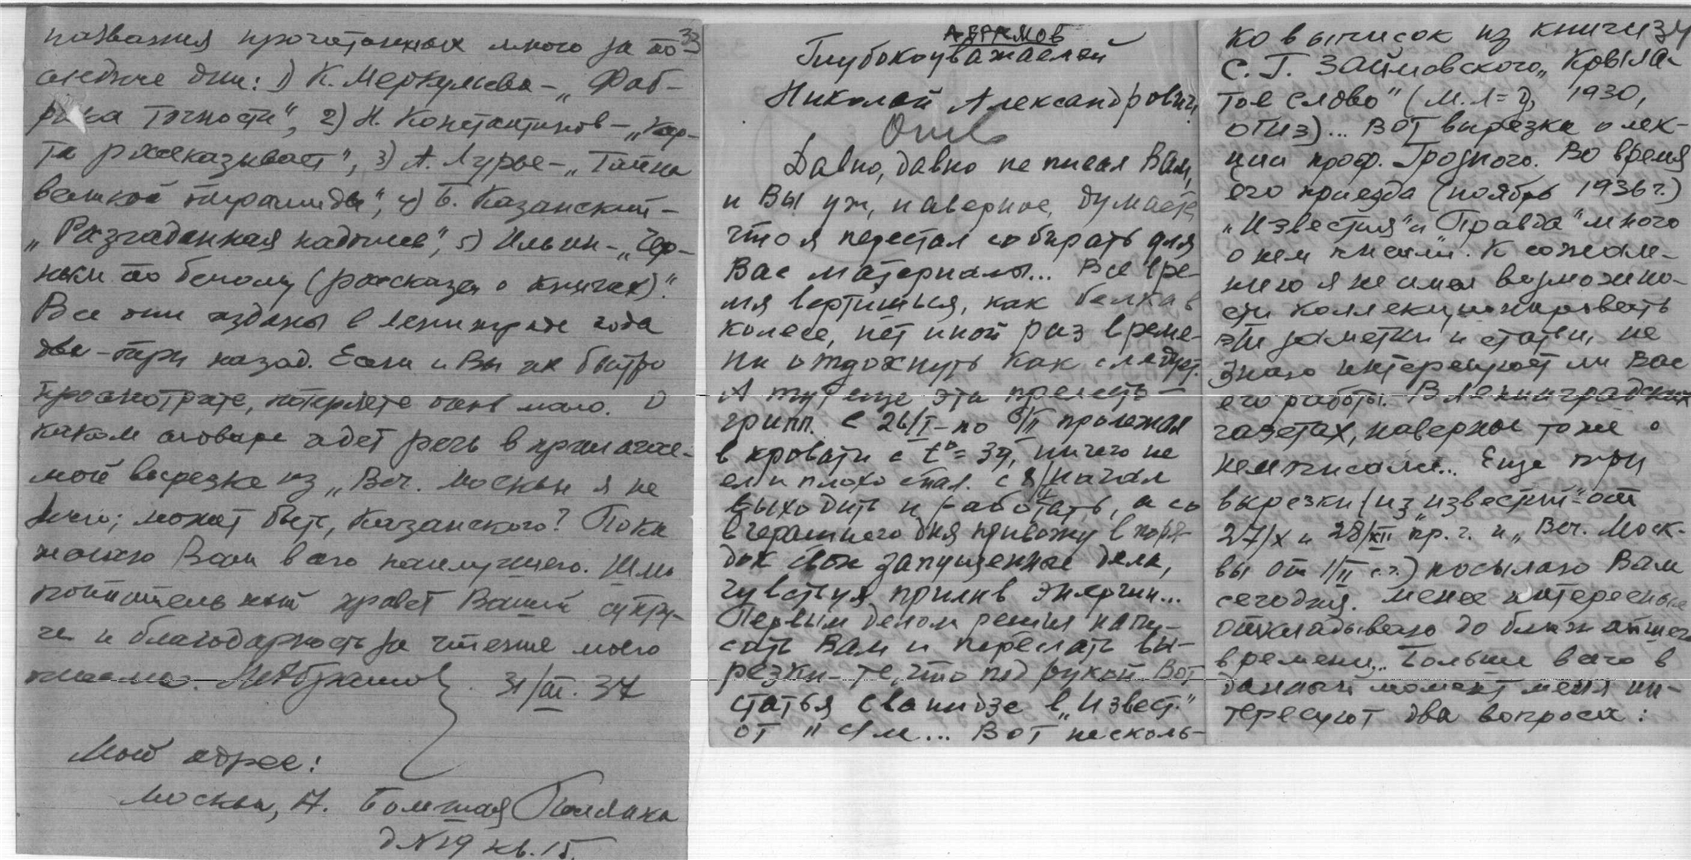 33
названия прочитанных много за по
следние дни: 1) К. Меркульева – „Фаб-
рика точности“, 2) Н. Константинов – „Кар-
та рассказывает“, 3) А. Лурье – „Тайна
великой пирамиды“, 4) Б. Казанский –
„Разгаданная надпись“, 5) Ильин – „Чер-
ным по белому (рассказы о книгах)“.
Все они изданы в Ленинграде года
два-три назад. Если и Вы их быстро
просмотрите, потеряете очень мало. О
каком словаре идет речь в прилагае-
мой вырезке из „Веч. Москвы я не
знаю; может быть, Казанского? Пока
желаю Вам всего наилучшего. Шлю
почтительный привет Вашей супру-
ге и благодарность за чтение моего
письма. 31/III.37
Мой адрес:
Москва, Большая Полянка
д №19 кв. 15.
АБРАМОВ
Глубокоуважаемый
Николай Александрович,
Давно, давно не писал Вам,
и Вы уж, наверное, думаете
что я перестал собирать для
Вас материалы... Все вре-
мя вертишься, как белка в
колесе, нет иной раз време-
ни отдохнуть как следует.
А тут еще эта прелесть
грипп. С 26/I – по 6/II пролежал
в кровати с t°= 39, ничего не
ел и плохо спал. с 8/II начал
выходить и работать, а со
вчерашнего дня привожу в поря-
док свои запущенные дела,
чувствуя прилив энергии...
Первым делом решил напи-
сать Вам и переслать вы-
резки – те, что под рукой. Вот
статья Сванидзе в „Извест.“
от ... Вот несколь-
34
ко выписок из книги
С. Г. Займовского „Крыла-
тое слово“ (М.Л= д, 1930,
ОГИЗ)... Вот вырезка о лек-
ции проф. Грозного. Во время
его приезда (ноябрь 1936 г.)
„Известия“ и „Правда“ много
о нем писали. К сожале-
нию я не имел возможно-
сти коллекционировать
эти заметки и статьи, не
знаю интересуют ли Вас
его работы. В Ленинградских
газетах, наверное тоже о
нем писали... Еще три
вырезки (из „Известий“ от
27/X и 28/XII пр. г. и „Веч. Моск-
вы от 1/II с.г.) посылаю Вам
сегодня. Менее интересные
откладываю до ближайшего
времени.. Больше всего в
данный момент меня ин-
тересуют два вопроса: